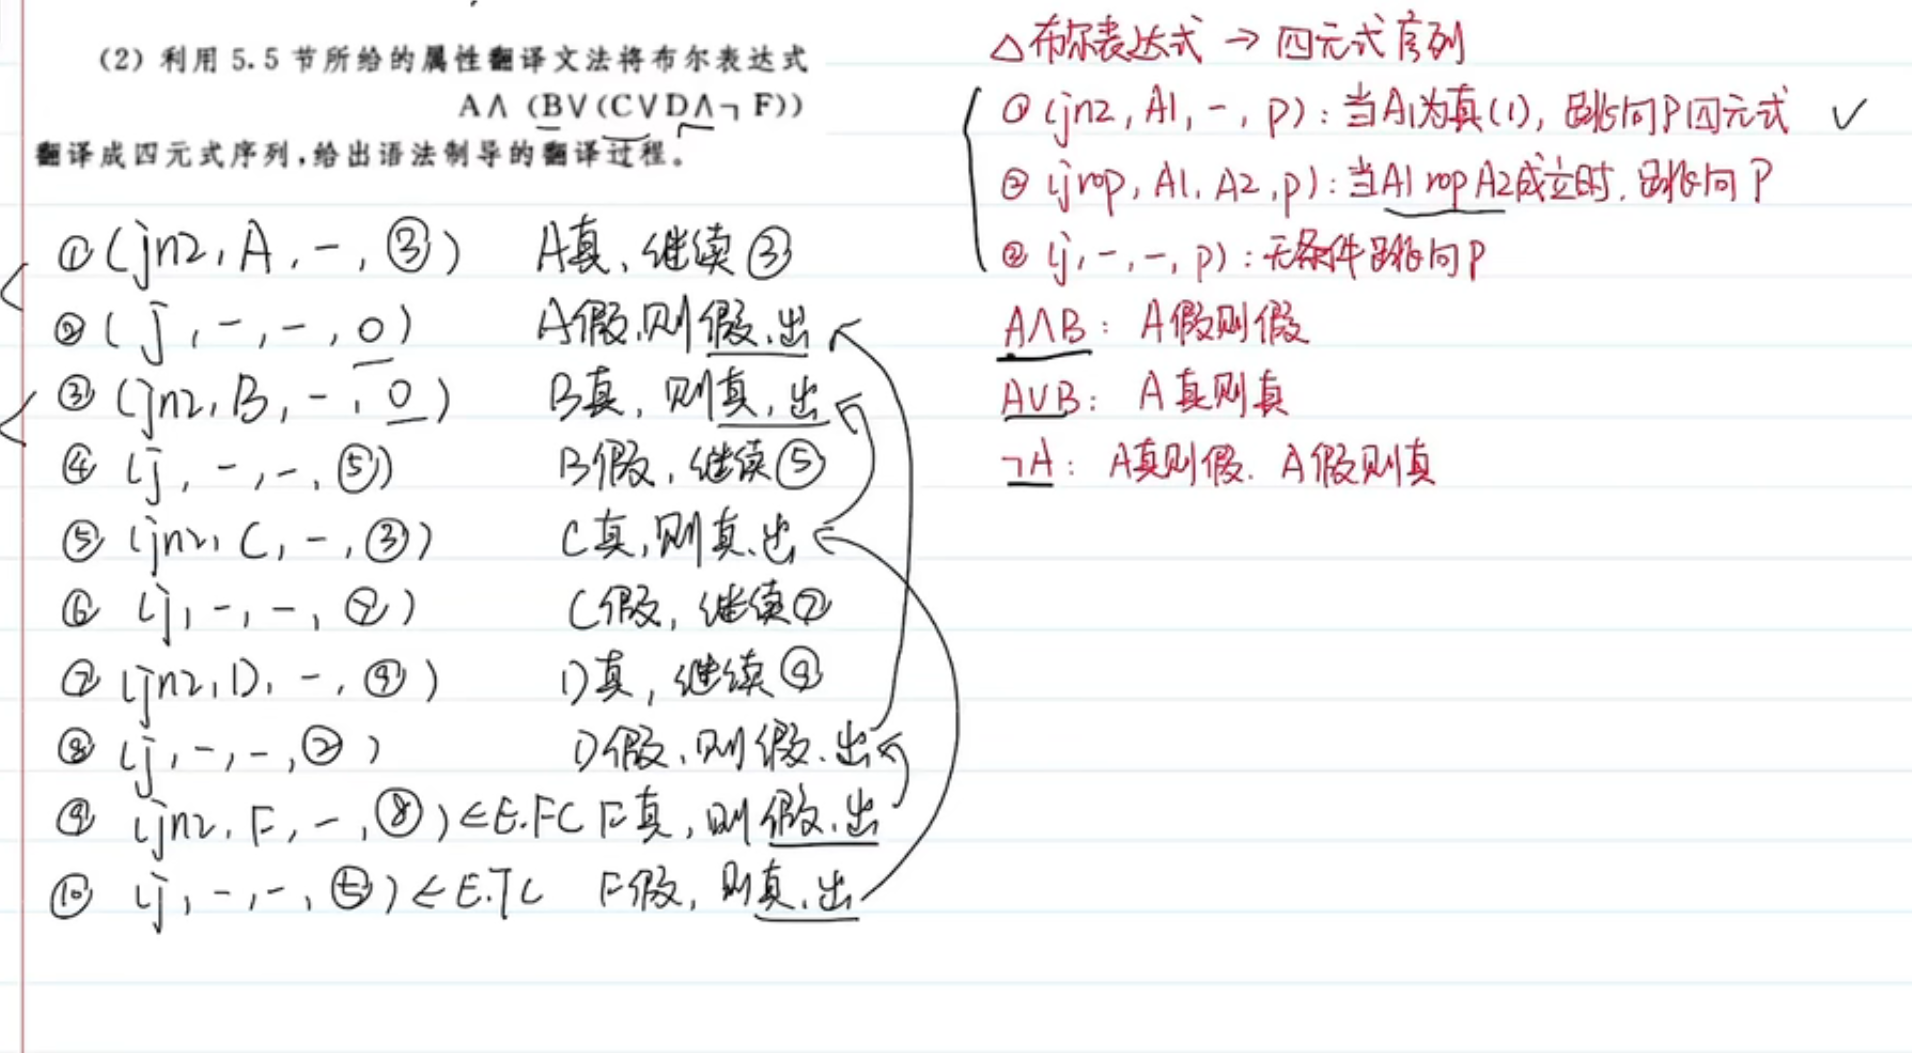 (2) 利用 5.5 节所给的属性翻译文法将布尔表达式
A∧(B∨(C∨D∧¬F))
翻译成四元式序列,给出语法制导的翻译过程。
① (jnz, A, -, ③) A真、继续③
② (j, -, -, 0) A假,则假、出
③ (jnz, B, -, 0) B真, 则真, 出
④ (j, -, -, ⑤) B假, 继续⑤
⑤ (jnz, C, -, ③) C真,则真、出
⑥ (j, -, -, ⑦) C假, 继续⑦
⑦ (jnz, D, -, ⑨) D真, 继续⑨
⑧ (j, -, -, ②) D假、则假、出
⑨ (jnz, F, -, ⑧) ←E.FC F真, 则假、出
⑩ (j, -, -, ⑤) ←E.TC F假, 则真、出
△布尔表达式 → 四元式序列
① (jnz, A1, -, p): 当A1为真(1), 跳向P四元式 ✓
② (jrop, A1, A2, p): 当A1 rop A2成立时, 跳向P
③ (j, -, -, p): 无条件跳向P
A∧B: A假则假
A∪B: A真则真
¬A: A真则假. A假则真